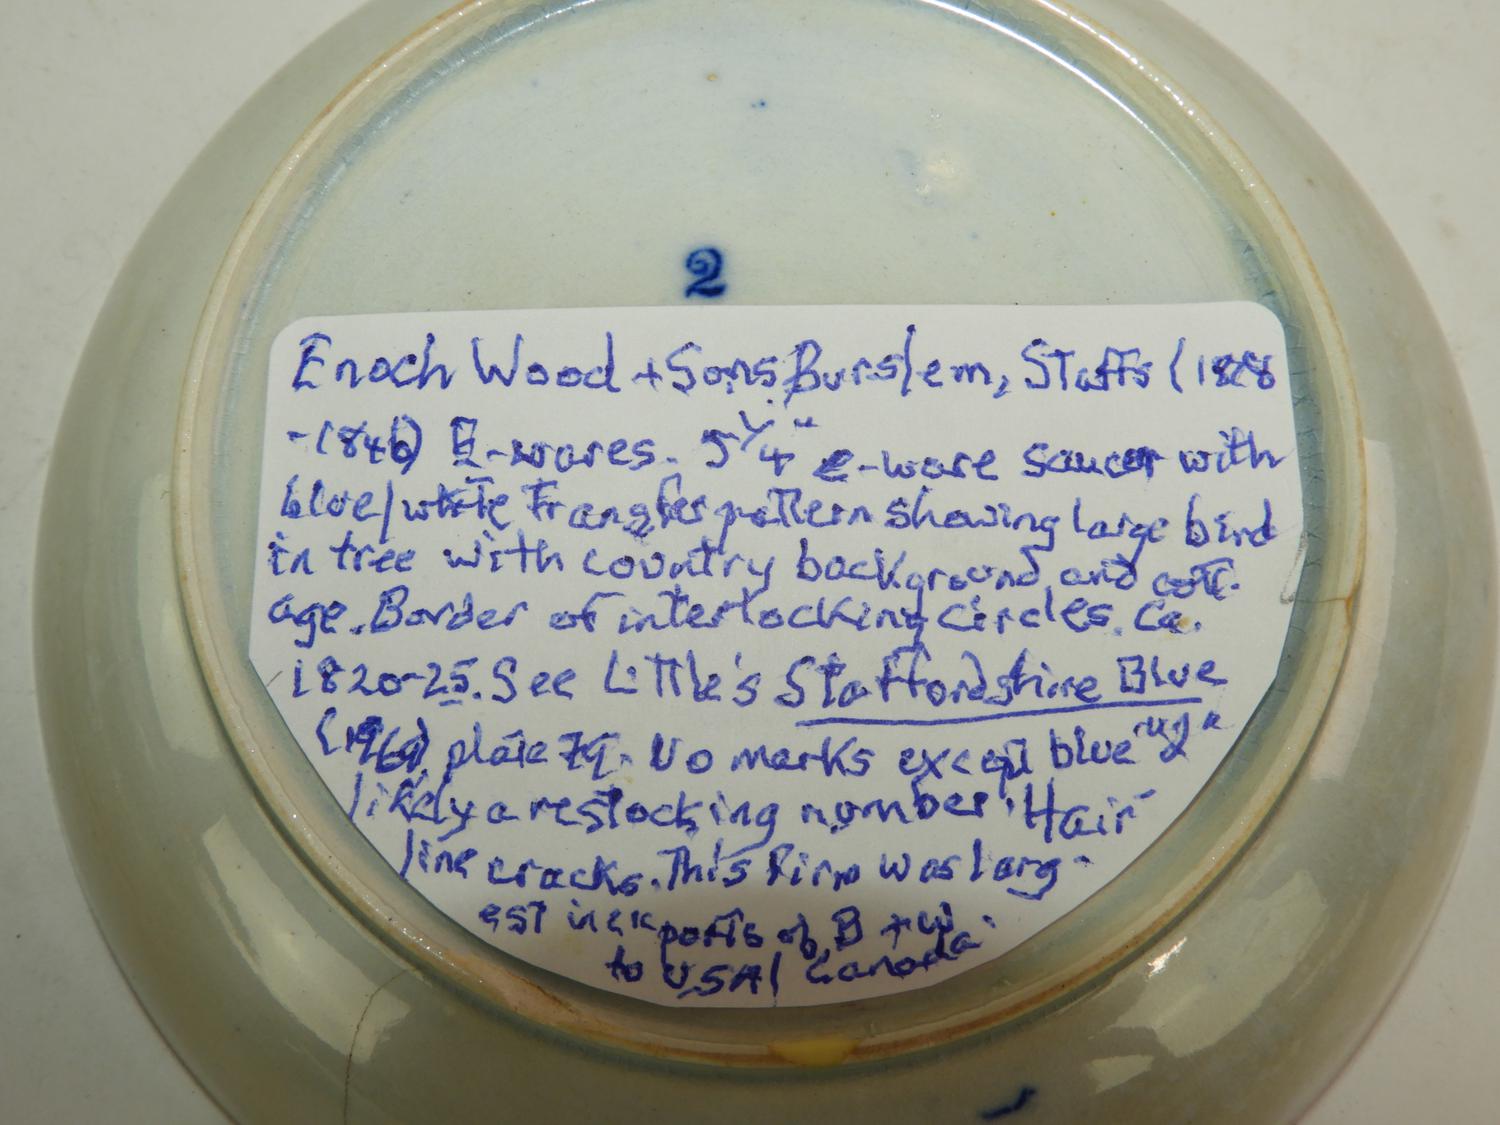 2
Enoch Wood + Sons, Burslem, Staffs (1828
-1846) E-wares. 5 1/4" e-ware saucer with
blue/white Transfer pattern showing large bird
in tree with country background and cott-
age. Border of interlocking circles. Ca.
1820-25. See Little's Staffordshire Blue
(1969) plate 79. No marks except blue "2"
likely a restocking number. Hair-
line cracks. This firm was larg-
est in exports of B + W
to USA/Canada.